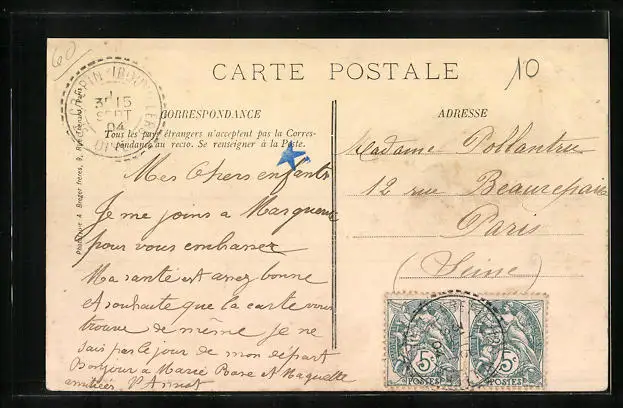 60
10
CARTE POSTALE
ST CRÉPIN IBOUVILLERS
3E 15
SEPT
04
OISE
CORRESPONDANCE
Tous les pays étrangers n'acceptent pas la Corres-
pondance au recto. Se renseigner à la Poste.
Phototypie A. Breger frères, 9, Rue Thénard, Paris
Mes Chers enfants
Je me joins a Marguerite
pour vous embrasser
Ma santé est assez bonne
et souhaite que la carte vous
trouve de même je ne
sais pas le jour de mon départ
Bonjour a Marie Rose et Maguette
amitiées
ADRESSE
Madame
12 rue Beaurepaire
Paris
(Seine)
5c
POSTES
5c
POSTES